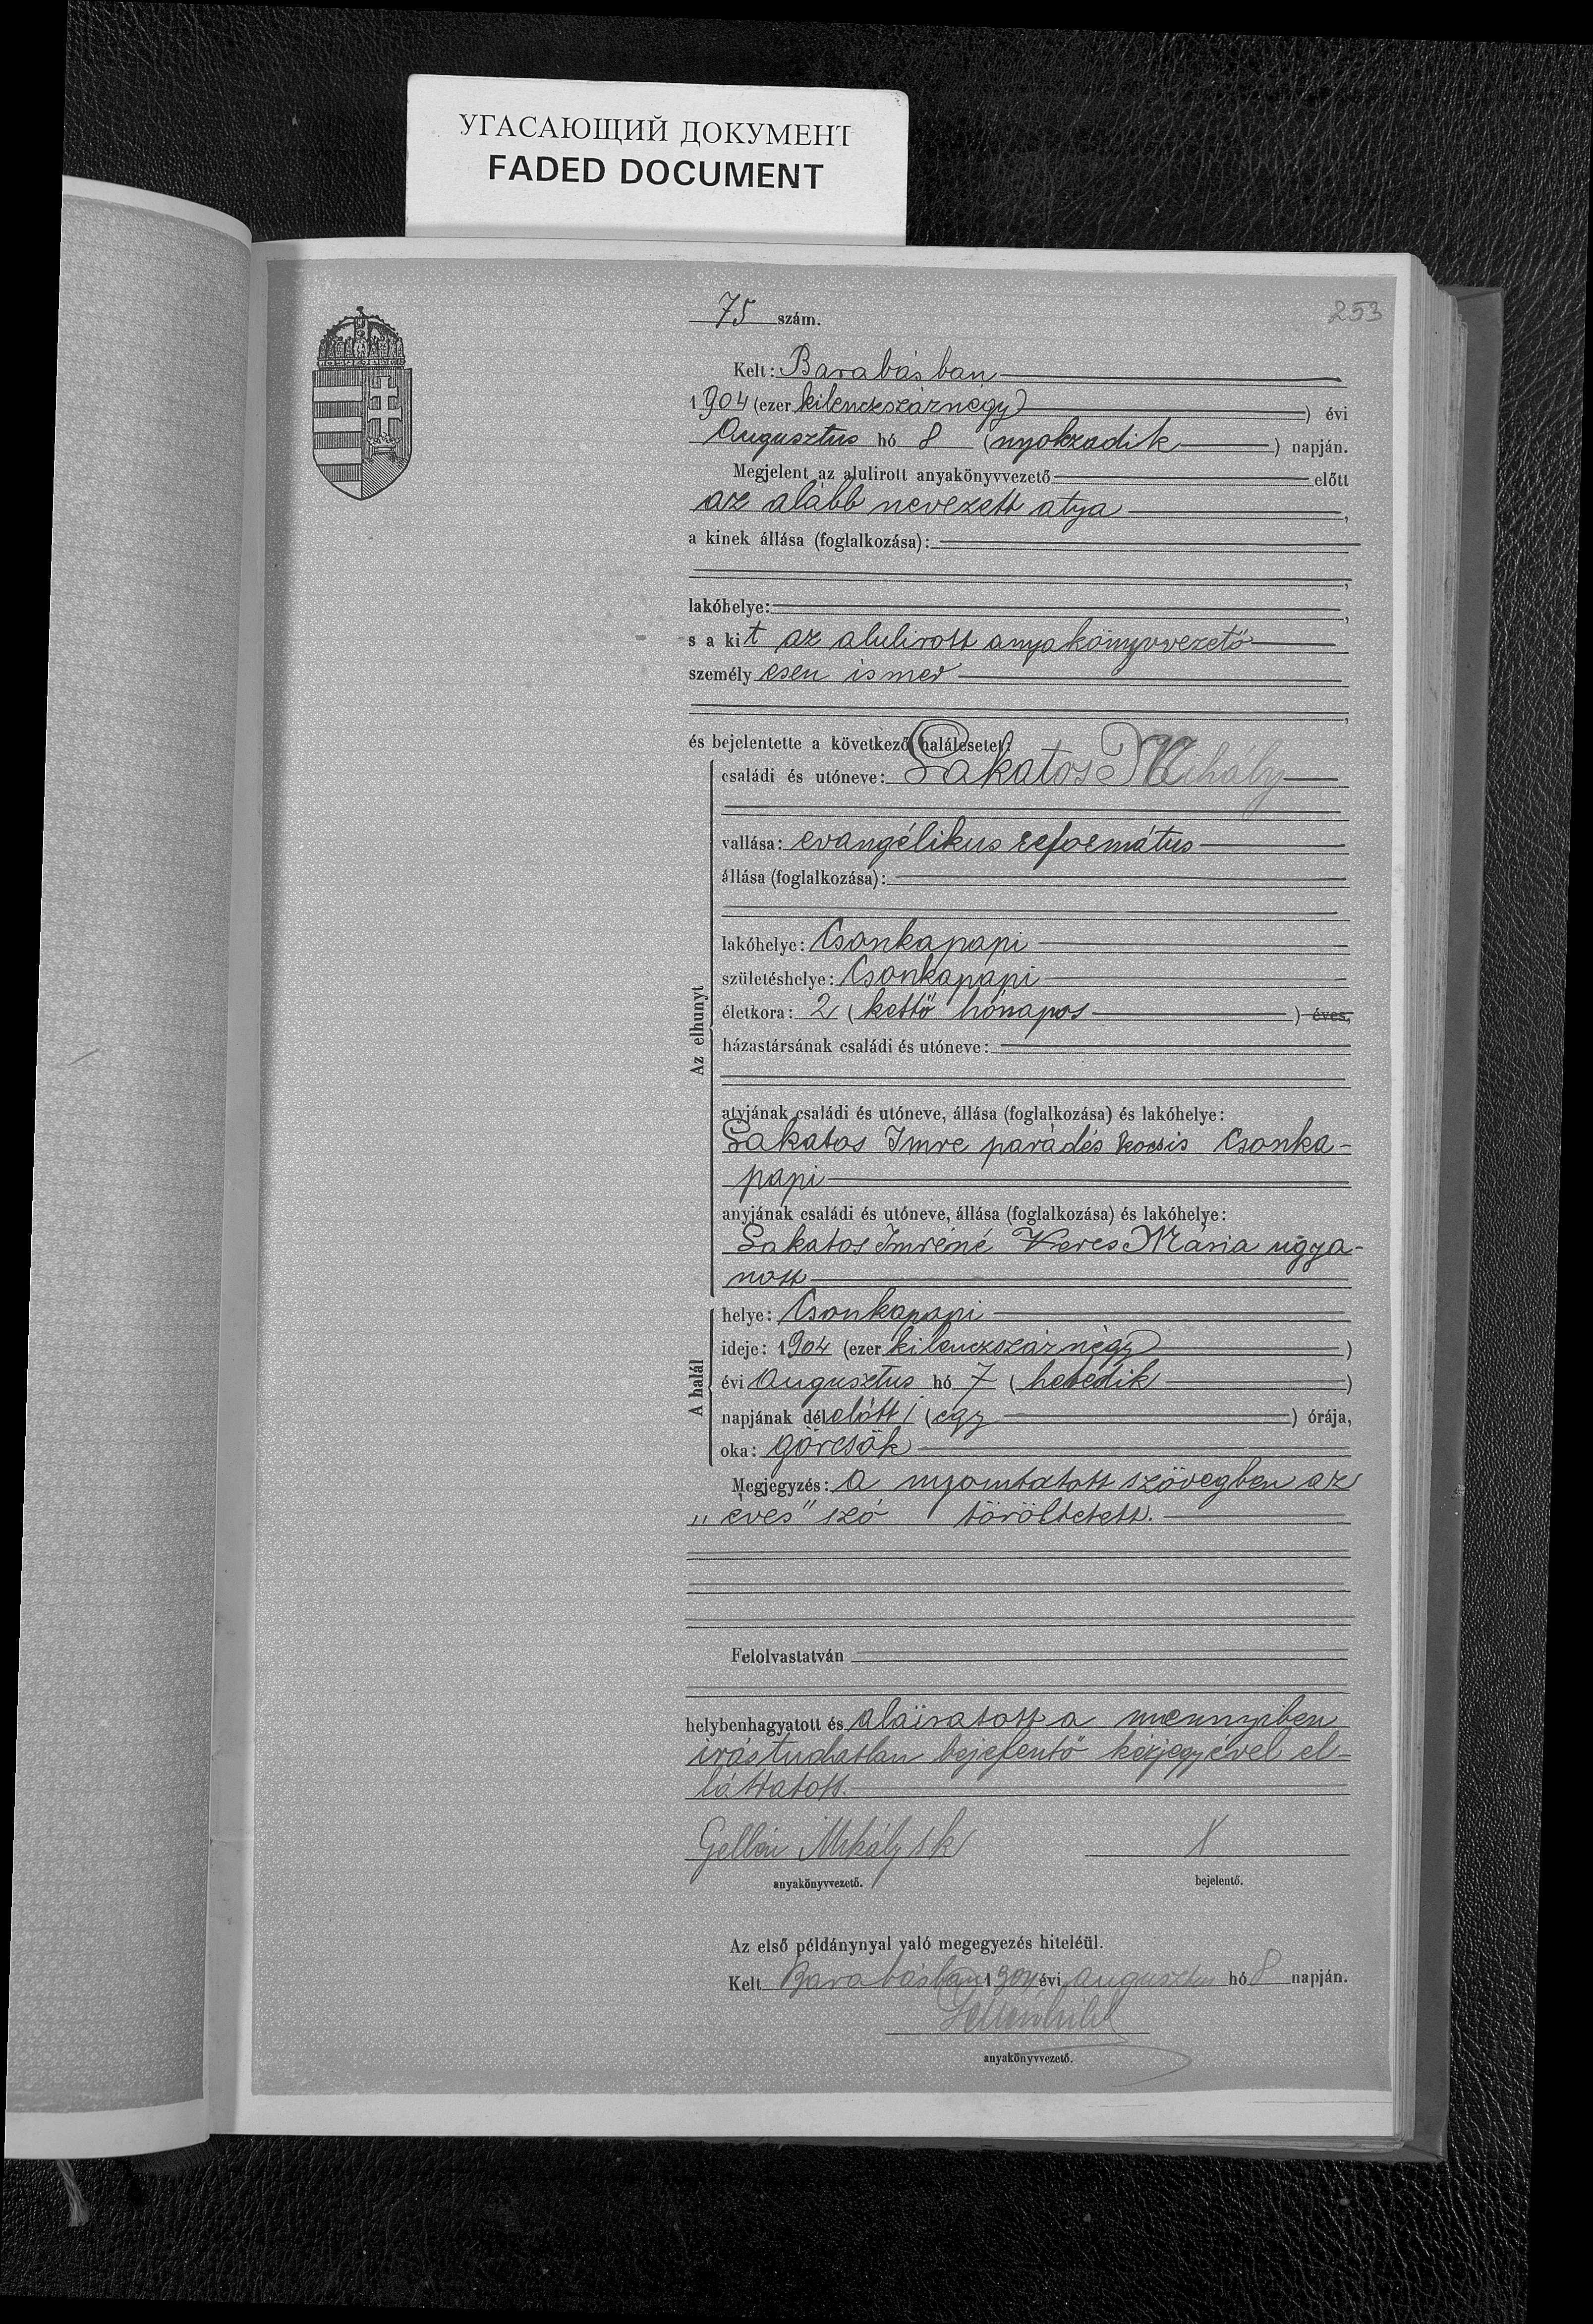 УГАСАЮЩИЙ ДОКУМЕНТ
FADED DOCUMENT
253
75 szám.
Kelt: Barabásban
1904 (ezer kilenczszáznégy) évi
Augusztus hó 8 (nyolczadik) napján.
Megjelent az alulirott anyakönyvvezető előtt
az alább nevezett atya,
a kinek állása (foglalkozása):
,
lakóhelye: ,
s a kit az alulirott anyakönyvvezető
személyesen ismer
,
és bejelentette a következő halálesetet:
Az elhunyt
családi és utóneve: Lakatos Mihály
vallása: evangélikus református
állása (foglalkozása):
lakóhelye: Csonkapapi
születéshelye: Csonkapapi
életkora: 2 (kettő hónapos) éves,
házastársának családi és utóneve:
atyjának családi és utóneve, állása (foglalkozása) és lakóhelye:
Lakatos Imre parádés kocsis Csonka-
papi
anyjának családi és utóneve, állása (foglalkozása) és lakóhelye:
Lakatos Imréné Veres Mária ugya-
nott
A halál
helye: Csonkapapi
ideje: 1904 (ezer kilenczszáznégy)
évi Augusztus hó 7 (hetedik)
napjának délelőtt 1 (egy) órája,
oka: görcsök
Megjegyzés: A nyomtatott szövegben az
„éves" szó töröltetett.
Felolvastatván
helybenhagyatott és aláiratott a mennyiben
irástudatlan bejelentő kézjegyével el-
láttatott.
Gellén Mihály sk X
anyakönyvvezető. bejelentő.
Az első példánynyal való megegyezés hiteléül.
Kelt Barabásban 1904 évi augusztus hó 8 napján.
anyakönyvvezető.